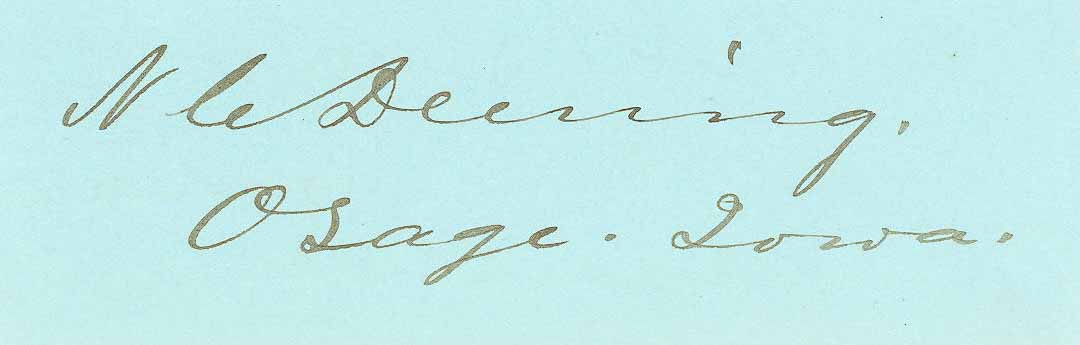 N C Deering.
Osage. Iowa.